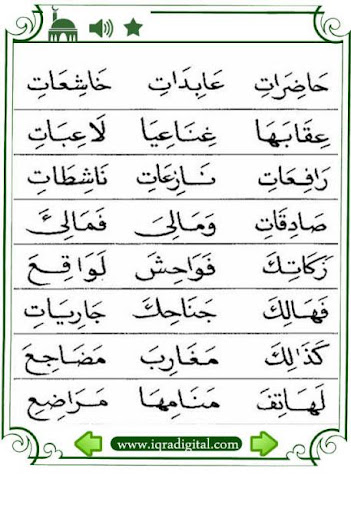 حَاضِرَاتِ عَابِدَاتِ خَاشِعَاتِ
عِقَابَهَا غِنَاعِيَا لَاعِبَاتِ
رَافِعَاتِ نَازِعَاتِ نَاشِطَاتِ
صَادِقَاتِ وَمَالِىَ فَمَالِئَ
زَكَاتِكَ فَوَاحِشَ لَوَاقِعَ
فَهَالِكَ جَنَاحِكَ جَارِيَاتِ
كَذَالِكَ مَغَارِبَ مَضَاجِعَ
لَهَاتِفَ مَنَامِهَا مَرَاضِعِ
www.iqradigital.com